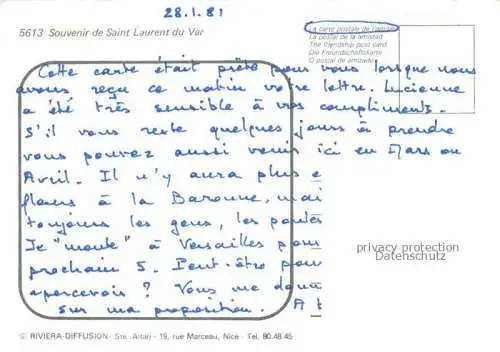 28.1.81
5613 Souvenir de Saint Laurent du Var
La carte postale de l'amitié
La postal de la amistad
The friendship post card
Die Freundschaftskarte
O postal de amizade
Cette carte était prête pour vous lorsque nous
avons reçu ce matin votre lettre. Lucienne
a été très sensible à vos compliments.
S'il vous reste quelques jours à prendre
vous pouvez aussi venir ici en Mars ou
Avril. Il n'y aura plus
à la Baronne, mai
toujours les gens, les
Je "monte" à Versailles pour
prochain 5. Peut-être pour
apercevoir ? Vous me
sur ma proposition. A
privacy protection
Datenschutz
© RIVIERA-DIFFUSION - Ste. Altari - 19, rue Marceau, Nice - Tel. 80.48.45